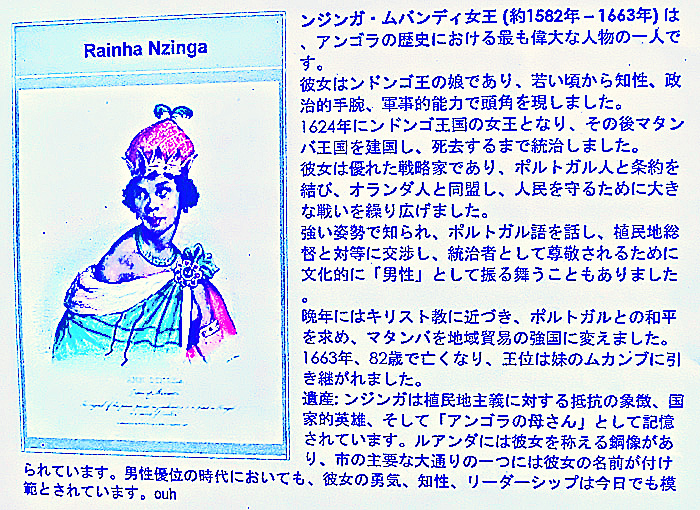 Rainha Nzinga
ンジンガ・ムバンディ女王 (約1582年 – 1663年) は
、アンゴラの歴史における最も偉大な人物の一人で
す。
彼女はンドンゴ王の娘であり、若い頃から知性、政
治的手腕、軍事的能力で頭角を現しました。
1624年にンドンゴ王国の女王となり、その後マタン
バ王国を建国し、死去するまで統治しました。
彼女は優れた戦略家であり、ポルトガル人と条約を
結び、オランダ人と同盟し、人民を守るために大き
な戦いを繰り広げました。
強い姿勢で知られ、ポルトガル語を話し、植民地総
督と対等に交渉し、統治者として尊敬されるために
文化的に「男性」として振る舞うこともありました
。
晩年にはキリスト教に近づき、ポルトガルとの和平
を求め、マタンバを地域貿易の強国に変えました。
1663年、82歳で亡くなり、王位は妹のムカンブに引
き継がれました。
遺産; ンジンガは植民地主義に対する抵抗の象徴、国
家的英雄、そして「アンゴラの母さん」として記憶
されています。ルアンダには彼女を称える銅像があ
り、市の主要な大通りの一つには彼女の名前が付け
られています。男性優位の時代においても、彼女の勇気、知性、リーダーシップは今日でも模
範とされています。ouh